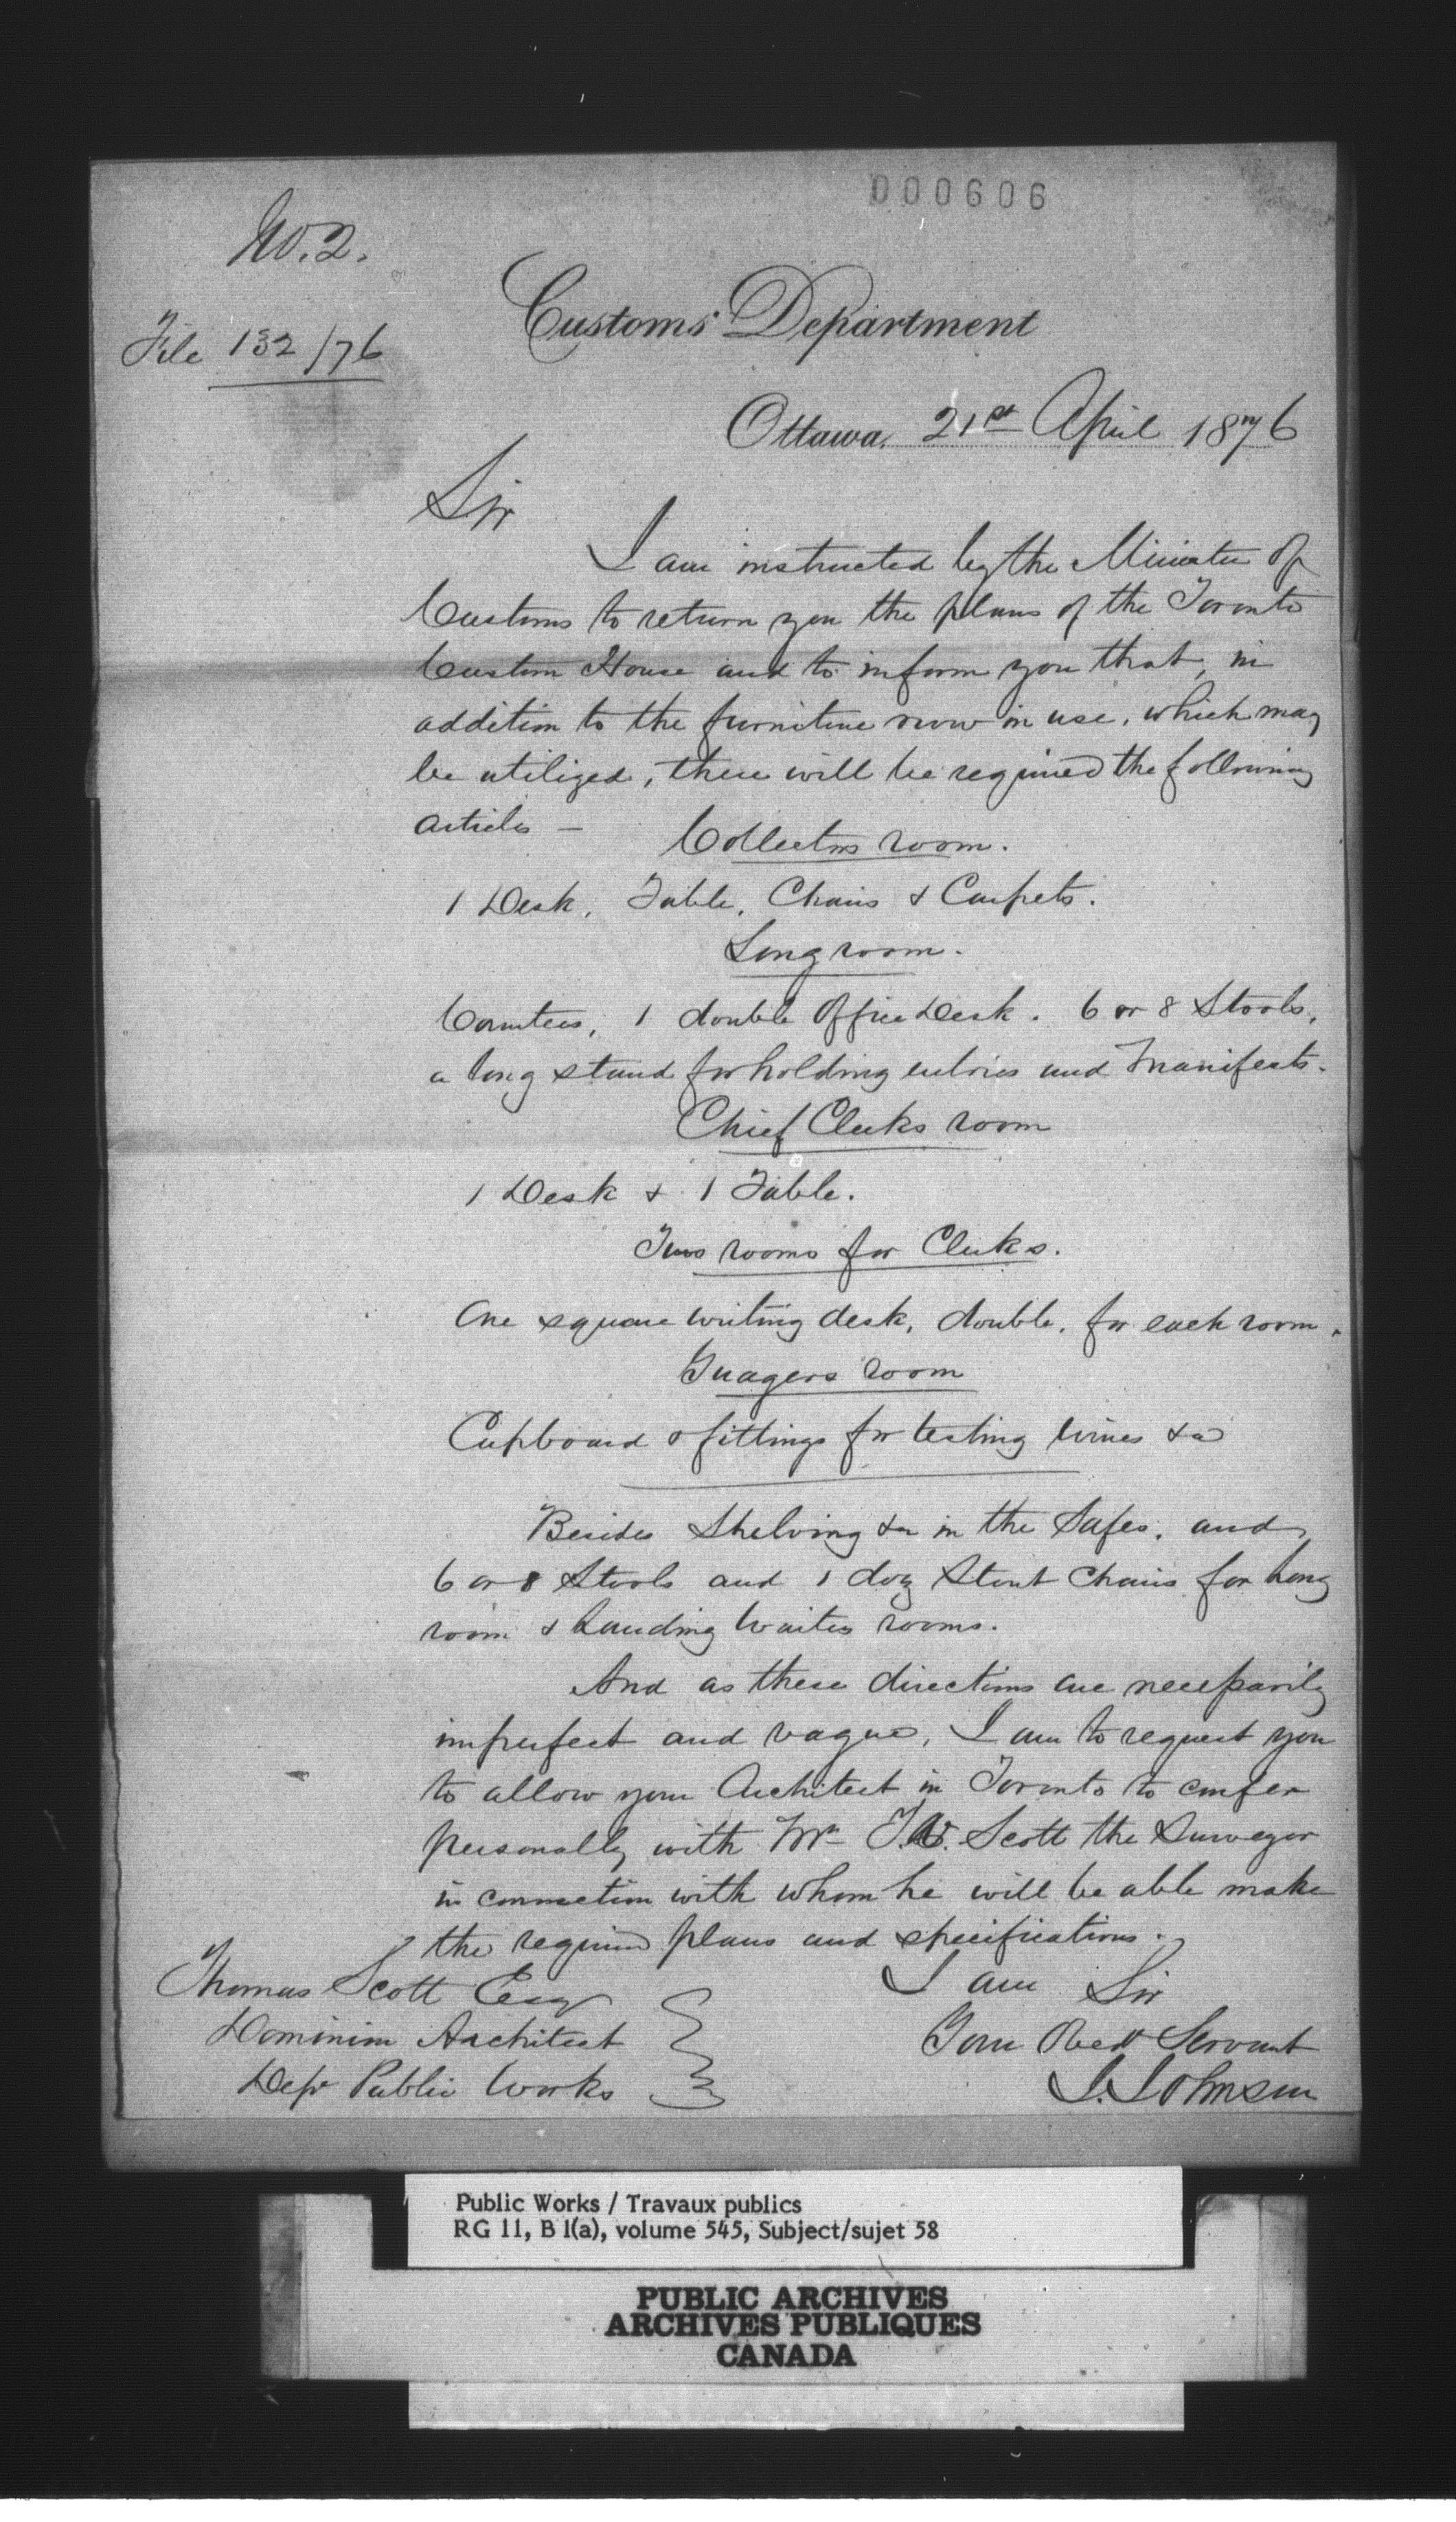 000606
No. 2.
File 132/76
Customs Department
Ottawa, 21st April 1876
Sir
I am instructed by the Minister of
Customs to return you the plans of the Toronto
Custom House and to inform you that, in
addition to the furniture now in use, which may
be utilized, there will be required the following
articles —
Collectors room.
1 Desk, Table, Chairs & Carpets.
Long room.
Counters, 1 double Office Desk. 6 or 8 Stools,
a long stand for holding entries and Manifests.
Chief Clerks room
1 Desk & 1 Table.
Two rooms for Clerks.
One square writing desk, double, for each room.
Guagers room
Cupboard & fittings for testing wines &a
Besides Shelving &a in the Safes, and
6 or 8 Stools and 1 doz Stout Chairs for Long
room & Landing Waiters rooms.
And as these directions are necessarily
imperfect and vague, I am to request you
to allow your Architect in Toronto to confer
personally with Mr Scott the Surveyor
in connection with whom he will be able make
the required plans and specifications.
I am Sir
Your Obedt Servant
J. Johnson
Thomas Scott Esq
Dominion Architect
Dep Public Works
Public Works / Travaux publics
RG 11, B 1(a), volume 545, Subject/sujet 58
PUBLIC ARCHIVES
ARCHIVES PUBLIQUES
CANADA